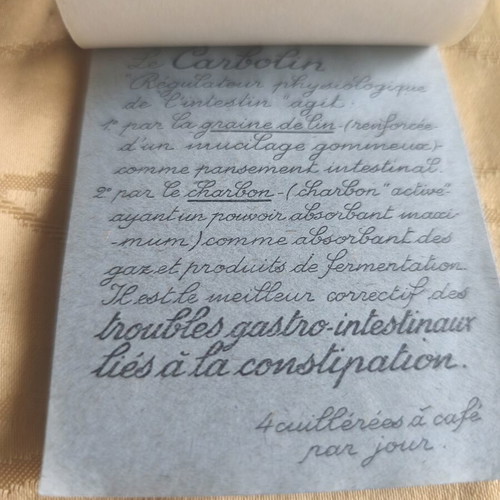 Le Carbolin
"Régulateur physiologique
de l'intestin" agit:
1° par la graine de lin - (renforcée
d'un mucilage gommeux)
comme pansement intestinal.
2° par le charbon - (charbon "activé"
ayant un pouvoir absorbant maxi-
-mum) comme absorbant des
gaz et produits de fermentation.
Il est le meilleur correctif des
troubles gastro-intestinaux
liés à la constipation.
4 cuillérées à café
par jour.